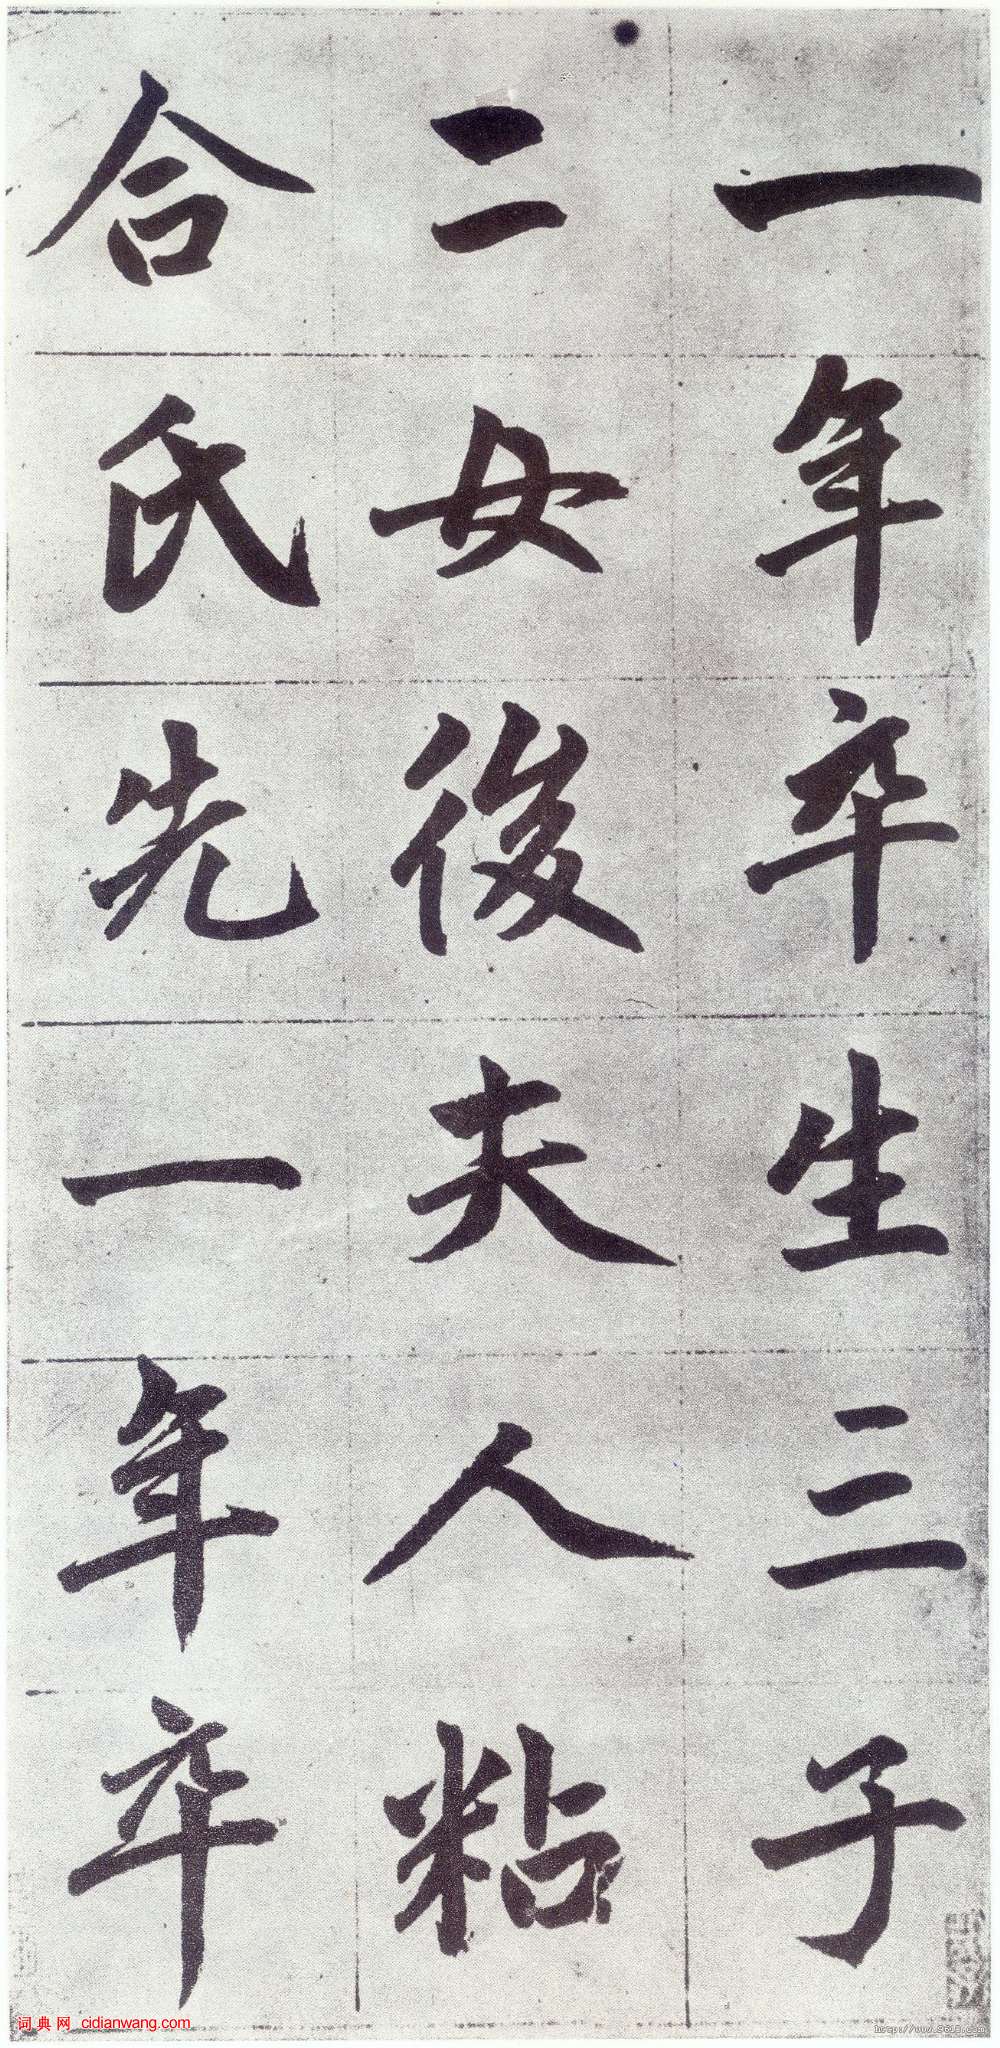 一年卒生三子
二女後夫人粘
合氏先一年卒
词典网 cidianwang.com